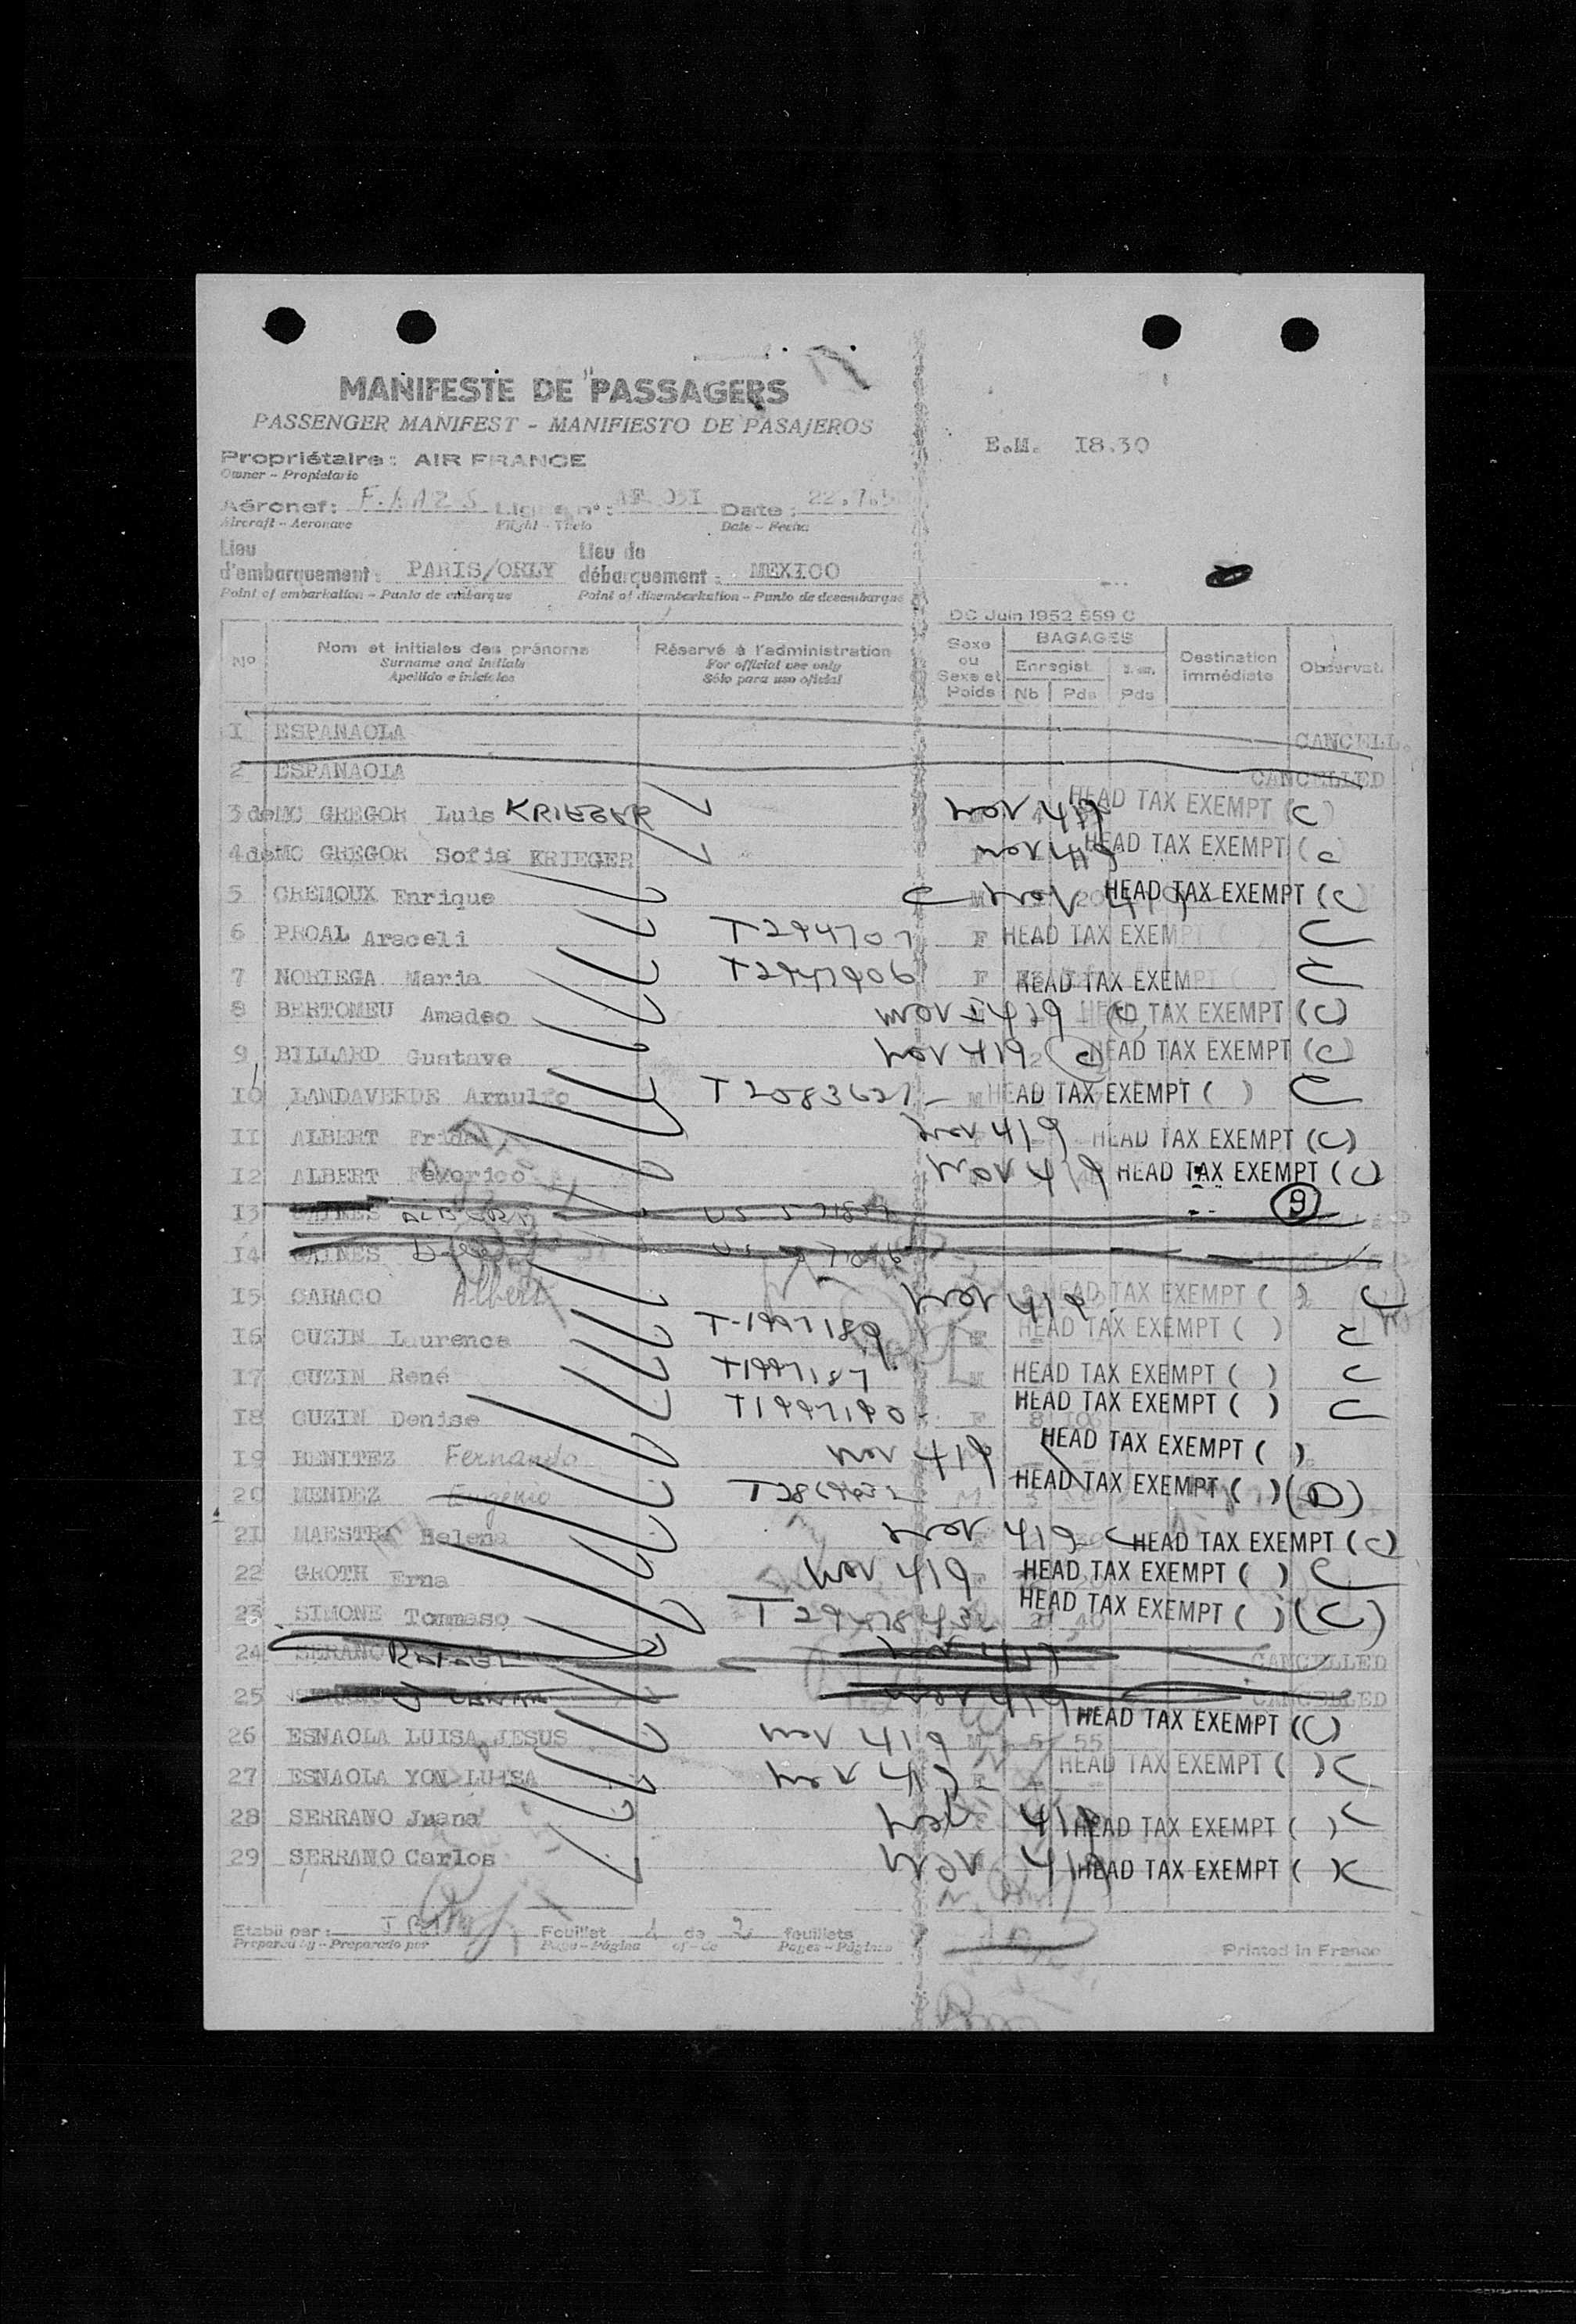 MANIFESTE DE PASSAGERS
PASSENGER MANIFEST - MANIFIESTO DE PASAJEROS
E.M. I8.30
Propriétaire: AIR FRANCE
Owner - Propietario
Aéronef: Ligne n°: AF 03I Date: 22.7.5
Aircraft - Aeronave Flight - Vuelo Date - Fecha
Lieu d'embarquement: PARIS/ORLY Lieu de débarquement: MEXICO
Point of embarkation - Punto de embarque Point of disembarkation - Punto de desembarque
DC Juin 1952 559 C
N° Nom et initiales des prénoms Réservé à l'administration Sexe ou Sexe et Poids BAGAGES Destination immédiate Observat.
Surname and initials For official use only Enregist.
Apellido e iniciales Sólo para uso oficial Nb Pds Pds
1 ESPANAOLA CANCELL.
2 ESPANAOLA CANCELLED
3 de MC GREGOR Luis KRIEGER nov 419 HEAD TAX EXEMPT (C)
4 de MC GREGOR Sofia KRIEGER nov 419 HEAD TAX EXEMPT (c)
5 CREMOUX Enrique C nov 419 HEAD TAX EXEMPT (C)
6 PROAL Araceli T294707 F HEAD TAX EXEMPT C
7 NORIEGA Maria T2947906 F HEAD TAX EXEMPT C
8 BERTOMEU Amadeo nov 419 HEAD TAX EXEMPT (C)
9 BILLARD Gustave nov 419 (c) HEAD TAX EXEMPT (C)
I0 LANDAVERDE Arnulfo T2083627 M HEAD TAX EXEMPT ( ) C
II ALBERT Frida nov 419 HEAD TAX EXEMPT (C)
I2 ALBERT nov 419 HEAD TAX EXEMPT (C)
I3 GAINES US (9)
I4 GAINES US
I5 CARAGO Albert nov 419 HEAD TAX EXEMPT ( ) C
I6 OUZIN Laurence T-1997189 HEAD TAX EXEMPT ( ) C
I7 OUZIN René T1997187 M HEAD TAX EXEMPT ( ) C
I8 OUZIN Denise T1997190 F HEAD TAX EXEMPT ( ) C
I9 BENITEZ Fernando nov 419 HEAD TAX EXEMPT ( )
20 MENDEZ Eugenio M HEAD TAX EXEMPT ( ) (D)
2I MAESTRE Helena nov 419 C HEAD TAX EXEMPT (C)
22 GROTH Erna nov 419 HEAD TAX EXEMPT ( ) C
23 SIMONE Tommaso HEAD TAX EXEMPT ( ) (C)
24 SERANO RAFAEL nov 419 CANCELLED
25 nov 419 CANCELLED
26 ESNAOLA LUISA JESUS nov 419 M 5 55 HEAD TAX EXEMPT (C)
27 ESNAOLA YON LUISA nov 419 F HEAD TAX EXEMPT ( ) C
28 SERRANO Juana nov 419 HEAD TAX EXEMPT ( ) C
29 SERRANO Carlos nov 419 HEAD TAX EXEMPT ( ) C
Etabli par: Feuillet de 2 feuillets
Prepared by - Preparado por Page - Página of - de Pages - Páginas
Printed in France